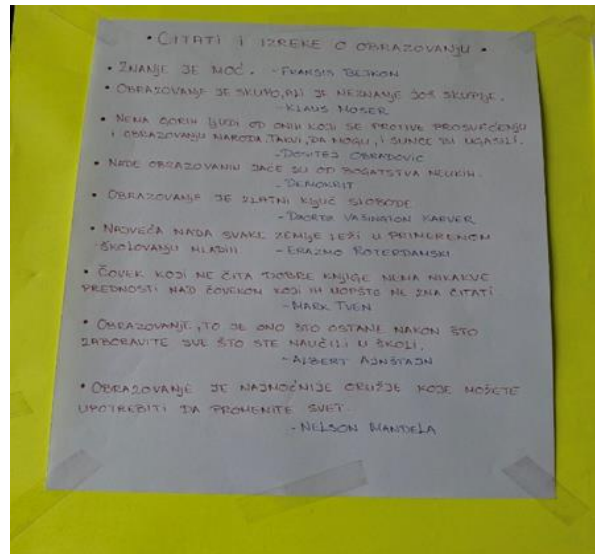 • CITATI I IZREKE O OBRAZOVANJU •
• ZNANJE JE MOĆ. - FRANSIS BEJKON
• OBRAZOVANJE JE SKUPO, ALI JE NEZNANJE JOŠ SKUPLJE.
- KLAUS MOSER
• NEMA GORIH LJUDI OD ONIH KOJI SE PROTIVE PROSVEĆENJU
I OBRAZOVANJU NARODA. TAKVI, DA MOGU, I SUNCE BI UGASILI.
- DOSITEJ OBRADOVIĆ
• NADE OBRAZOVANIH JAČE SU OD BOGATSTVA NEUKIH.
- DEMOKRIT
• OBRAZOVANJE JE ZLATNI KLJUČ SLOBODE.
- DŽORDŽ VAŠINGTON KARVER
• NAJVEĆA NADA SVAKE ZEMLJE LEŽI U PRIMERENOM
ŠKOLOVANJU MLADIH. - ERAZMO ROTERDAMSKI
• ČOVEK KOJI NE ČITA DOBRE KNJIGE NEMA NIKAKVE
PREDNOSTI NAD ČOVEKOM KOJI IH UOPŠTE NE ZNA ČITATI
- MARK TVEN
• OBRAZOVANJE, TO JE ONO ŠTO OSTANE NAKON ŠTO
ZABORAVITE SVE ŠTO STE NAUČILI U ŠKOLI.
- ALBERT AJNŠTAJN
• OBRAZOVANJE JE NAJMOĆNIJE ORUŽJE KOJE MOŽETE
UPOTREBITI DA PROMENITE SVET.
- NELSON MANDELA